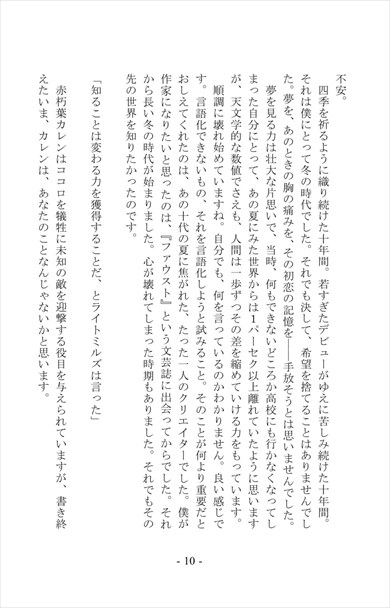 不安。
　四季を祈るように織り続けた十年間。若すぎたデビューがゆえに苦しみ続けた十年間。
それは僕にとって冬の時代でした。それでも決して、希望を捨てることはありませんでし
た。夢を、あのときの胸の痛みを、その初恋の記憶を――手放そうとは思いませんでした。
　夢を見る力は壮大な片思いで、当時、何もできないどころか高校にも行かなくなってし
まった自分にとって、あの夏にみた世界からは１パーセク以上離れていたように思います
が、天文学的な数値でさえも、人間は一歩ずつその差を縮めていける力をもっています。
　順調に壊れ始めていますね。自分でも、何を言っているのかわかりません。良い感じで
す。言語化できないもの、それを言語化しようと試みること。そのことが何より重要だと
おしえてくれたのは、あの十代の夏に焦がれた、たった一人のクリエイターでした。僕が
作家になりたいと思ったのは、『ファウスト』という文芸誌に出会ってからでした。それ
から長い冬の時代が始まりました。心が壊れてしまった時期もありました。それでもその
先の世界を知りたかったのです。
「知ることは変わる力を獲得することだ、とライトミルズは言った」
　赤朽葉カレンはココロを犠牲に未知の敵を迎撃する役目を与えられていますが、書き終
えたいま、カレンは、あなたのことなんじゃないかと思います。
- 10 -